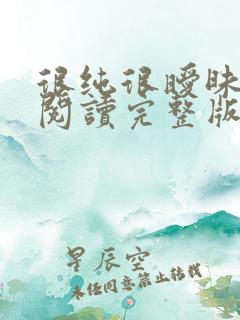 很纯很曖昧
閱讀完整版
星辰空
未经同意禁止转载